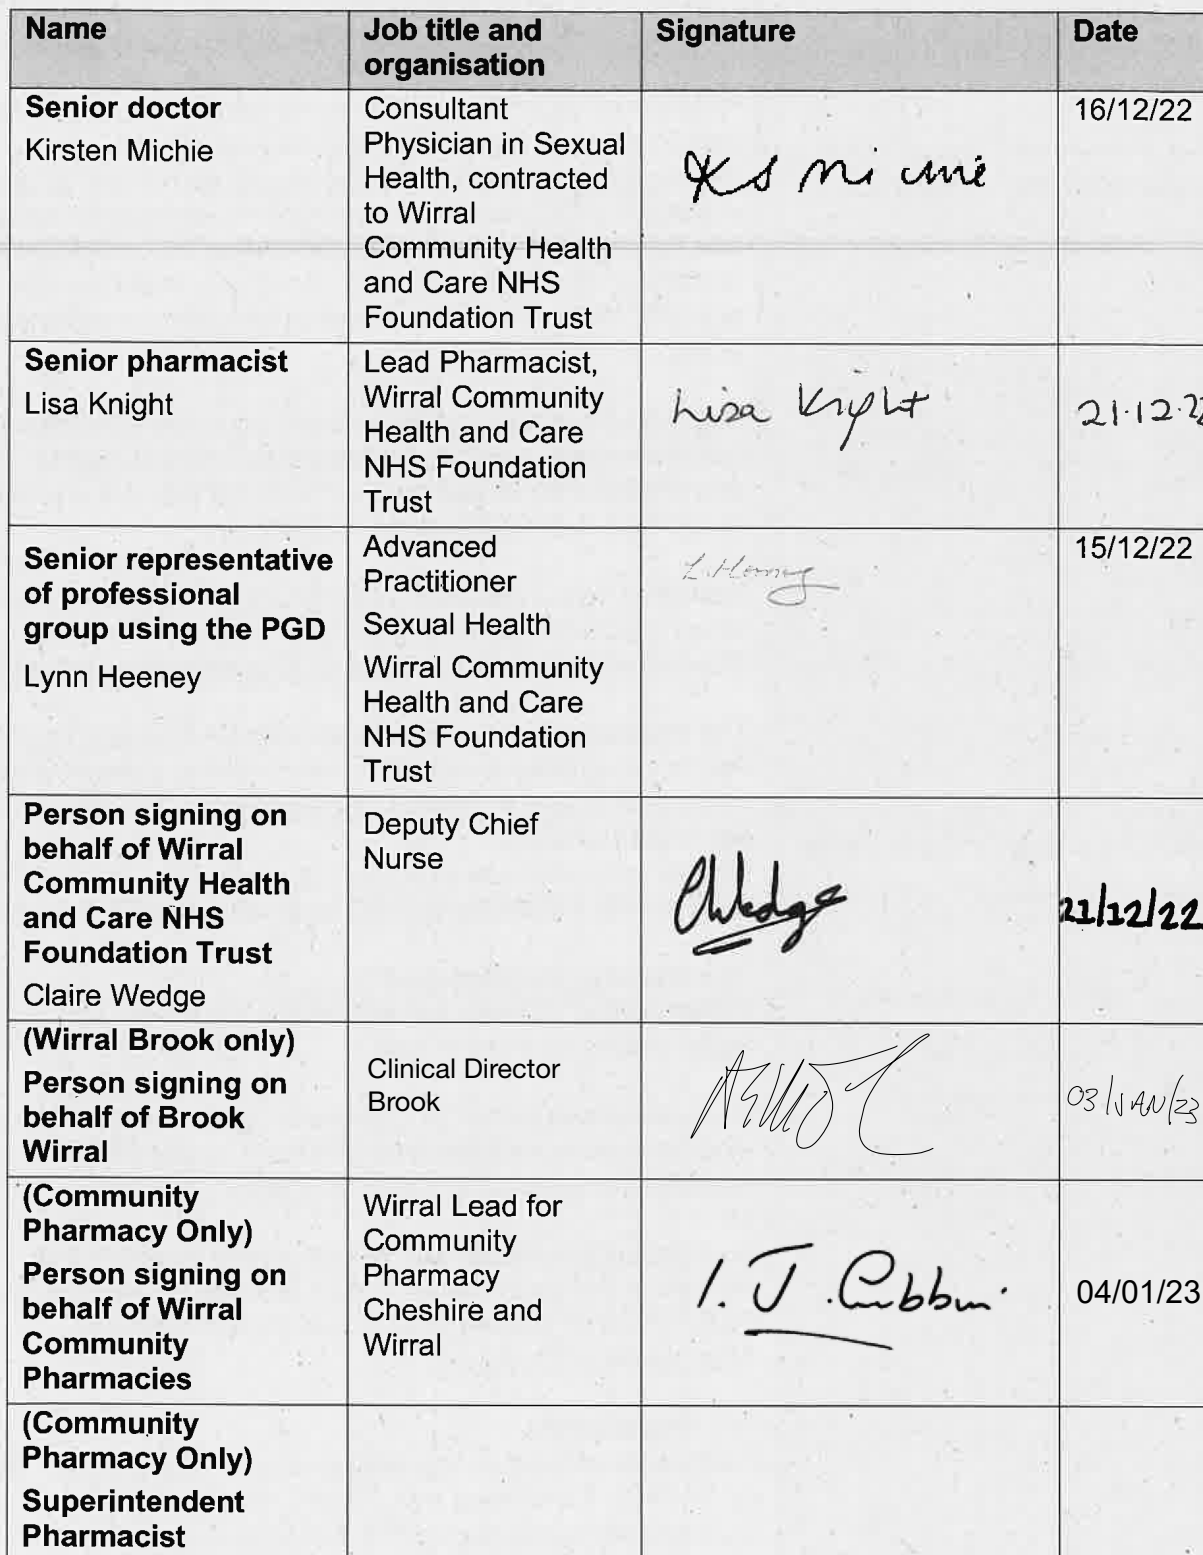 Name
Job title and
organisation
Signature
Date
Senior doctor
Kirsten Michie
Consultant
Physician in Sexual
Health, contracted
to Wirral
Community Health
and Care NHS
Foundation Trust
KS Michie
16/12/22
Senior pharmacist
Lisa Knight
Lead Pharmacist,
Wirral Community
Health and Care
NHS Foundation
Trust
Lisa Knight
21.12.22
Senior representative
of professional
group using the PGD
Lynn Heeney
Advanced
Practitioner
Sexual Health
Wirral Community
Health and Care
NHS Foundation
Trust
L. Heeney
15/12/22
Person signing on
behalf of Wirral
Community Health
and Care NHS
Foundation Trust
Claire Wedge
Deputy Chief
Nurse
CWedge
21/12/22
(Wirral Brook only)
Person signing on
behalf of Brook
Wirral
Clinical Director
Brook
03/JAN/23
(Community
Pharmacy Only)
Person signing on
behalf of Wirral
Community
Pharmacies
Wirral Lead for
Community
Pharmacy
Cheshire and
Wirral
I. J. Cubbin.
04/01/23
(Community
Pharmacy Only)
Superintendent
Pharmacist